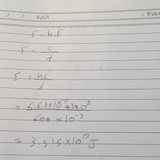 E = h.F
F = c/λ
E = hc/λ
= 6.63×10⁻³⁴×3×10⁸ / 600×10⁻⁹
= 3.315×10¹⁹ J